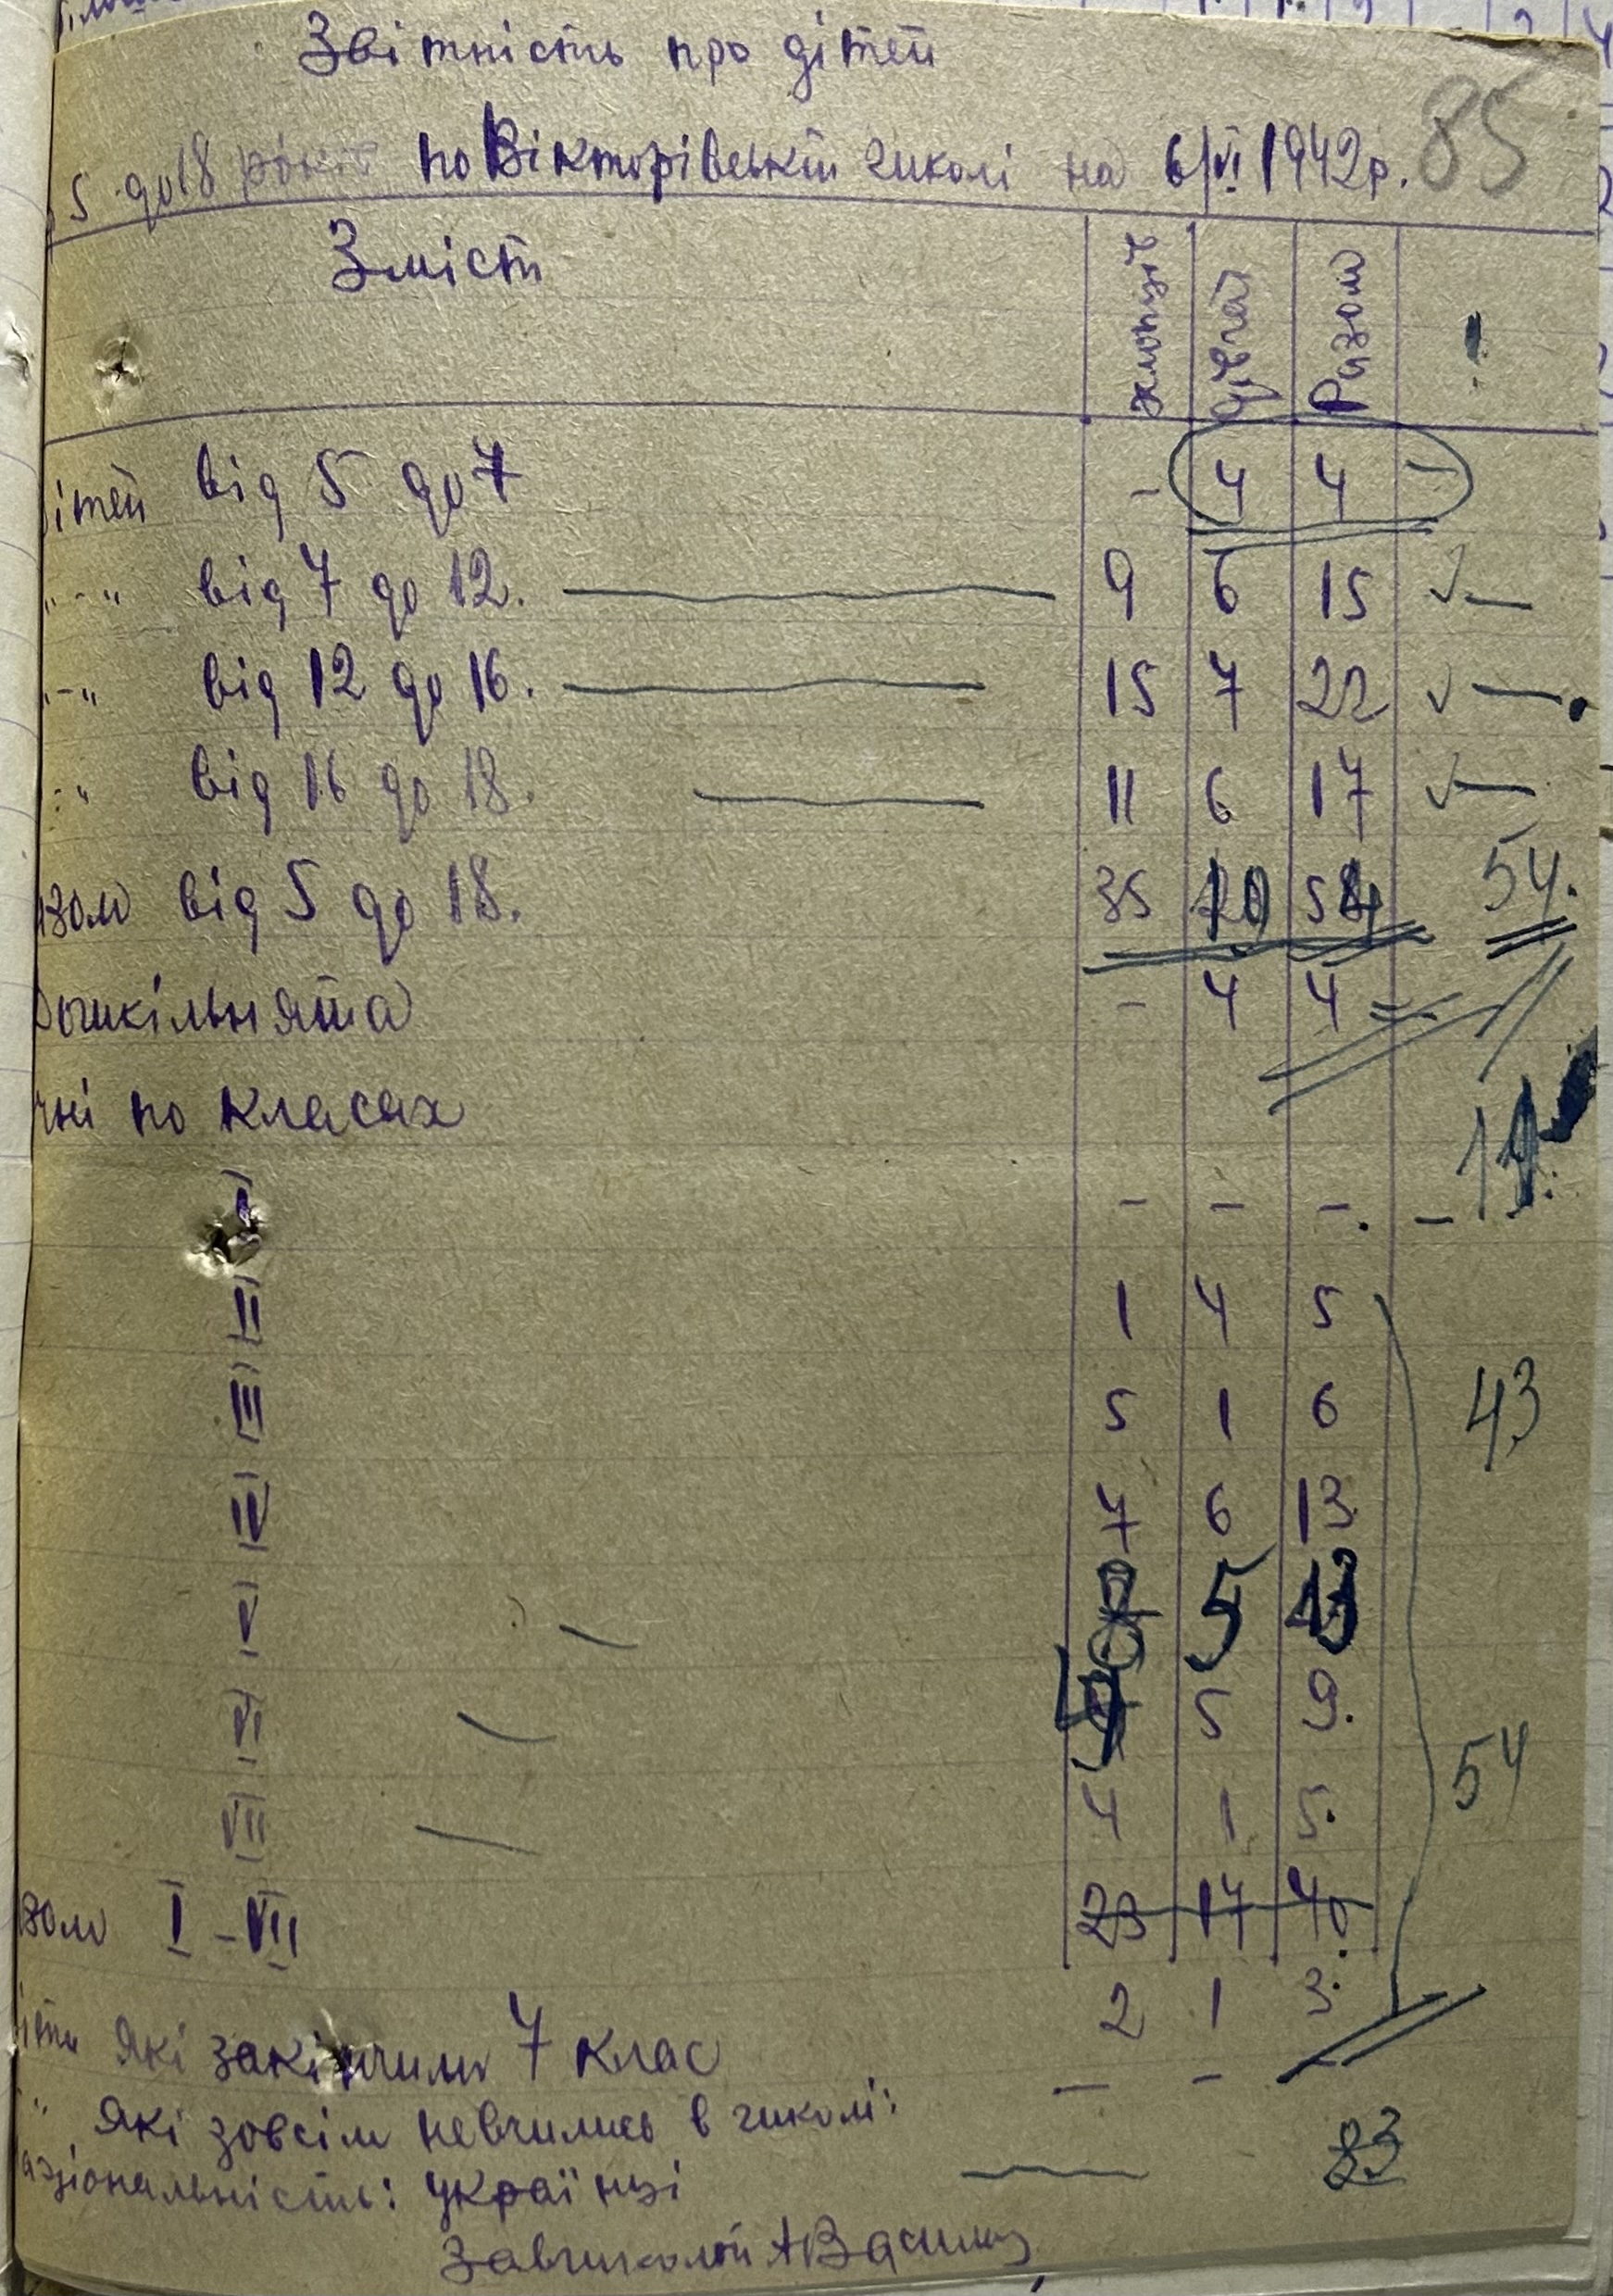 Звітність про дітей
5 до 18 років по Вікторівській школі на 6/VI 1942р. 85
Зміст хлопців дівчат Разом
дітей від 5 до 7 - 4 4 -
-"- від 7 до 12. 9 6 15 √—
-"- від 12 до 16. 15 7 22 √—
-"- від 16 до 18. 11 6 17 √—
Разом від 5 до 18. 35 54 54.
Дошкільнята - 4 4
учні по класах
I - - - -
II 1 4 5
III 5 1 6 43
IV 7 6 13
V 5 13
VI 5 9.
VII 4 1 5. 54
Разом I - VII 23 17 40
2 1 3.
діти які закінчили 7 клас
" які зовсім невчились в школі: - - -
національність: українці 83
Завшколой